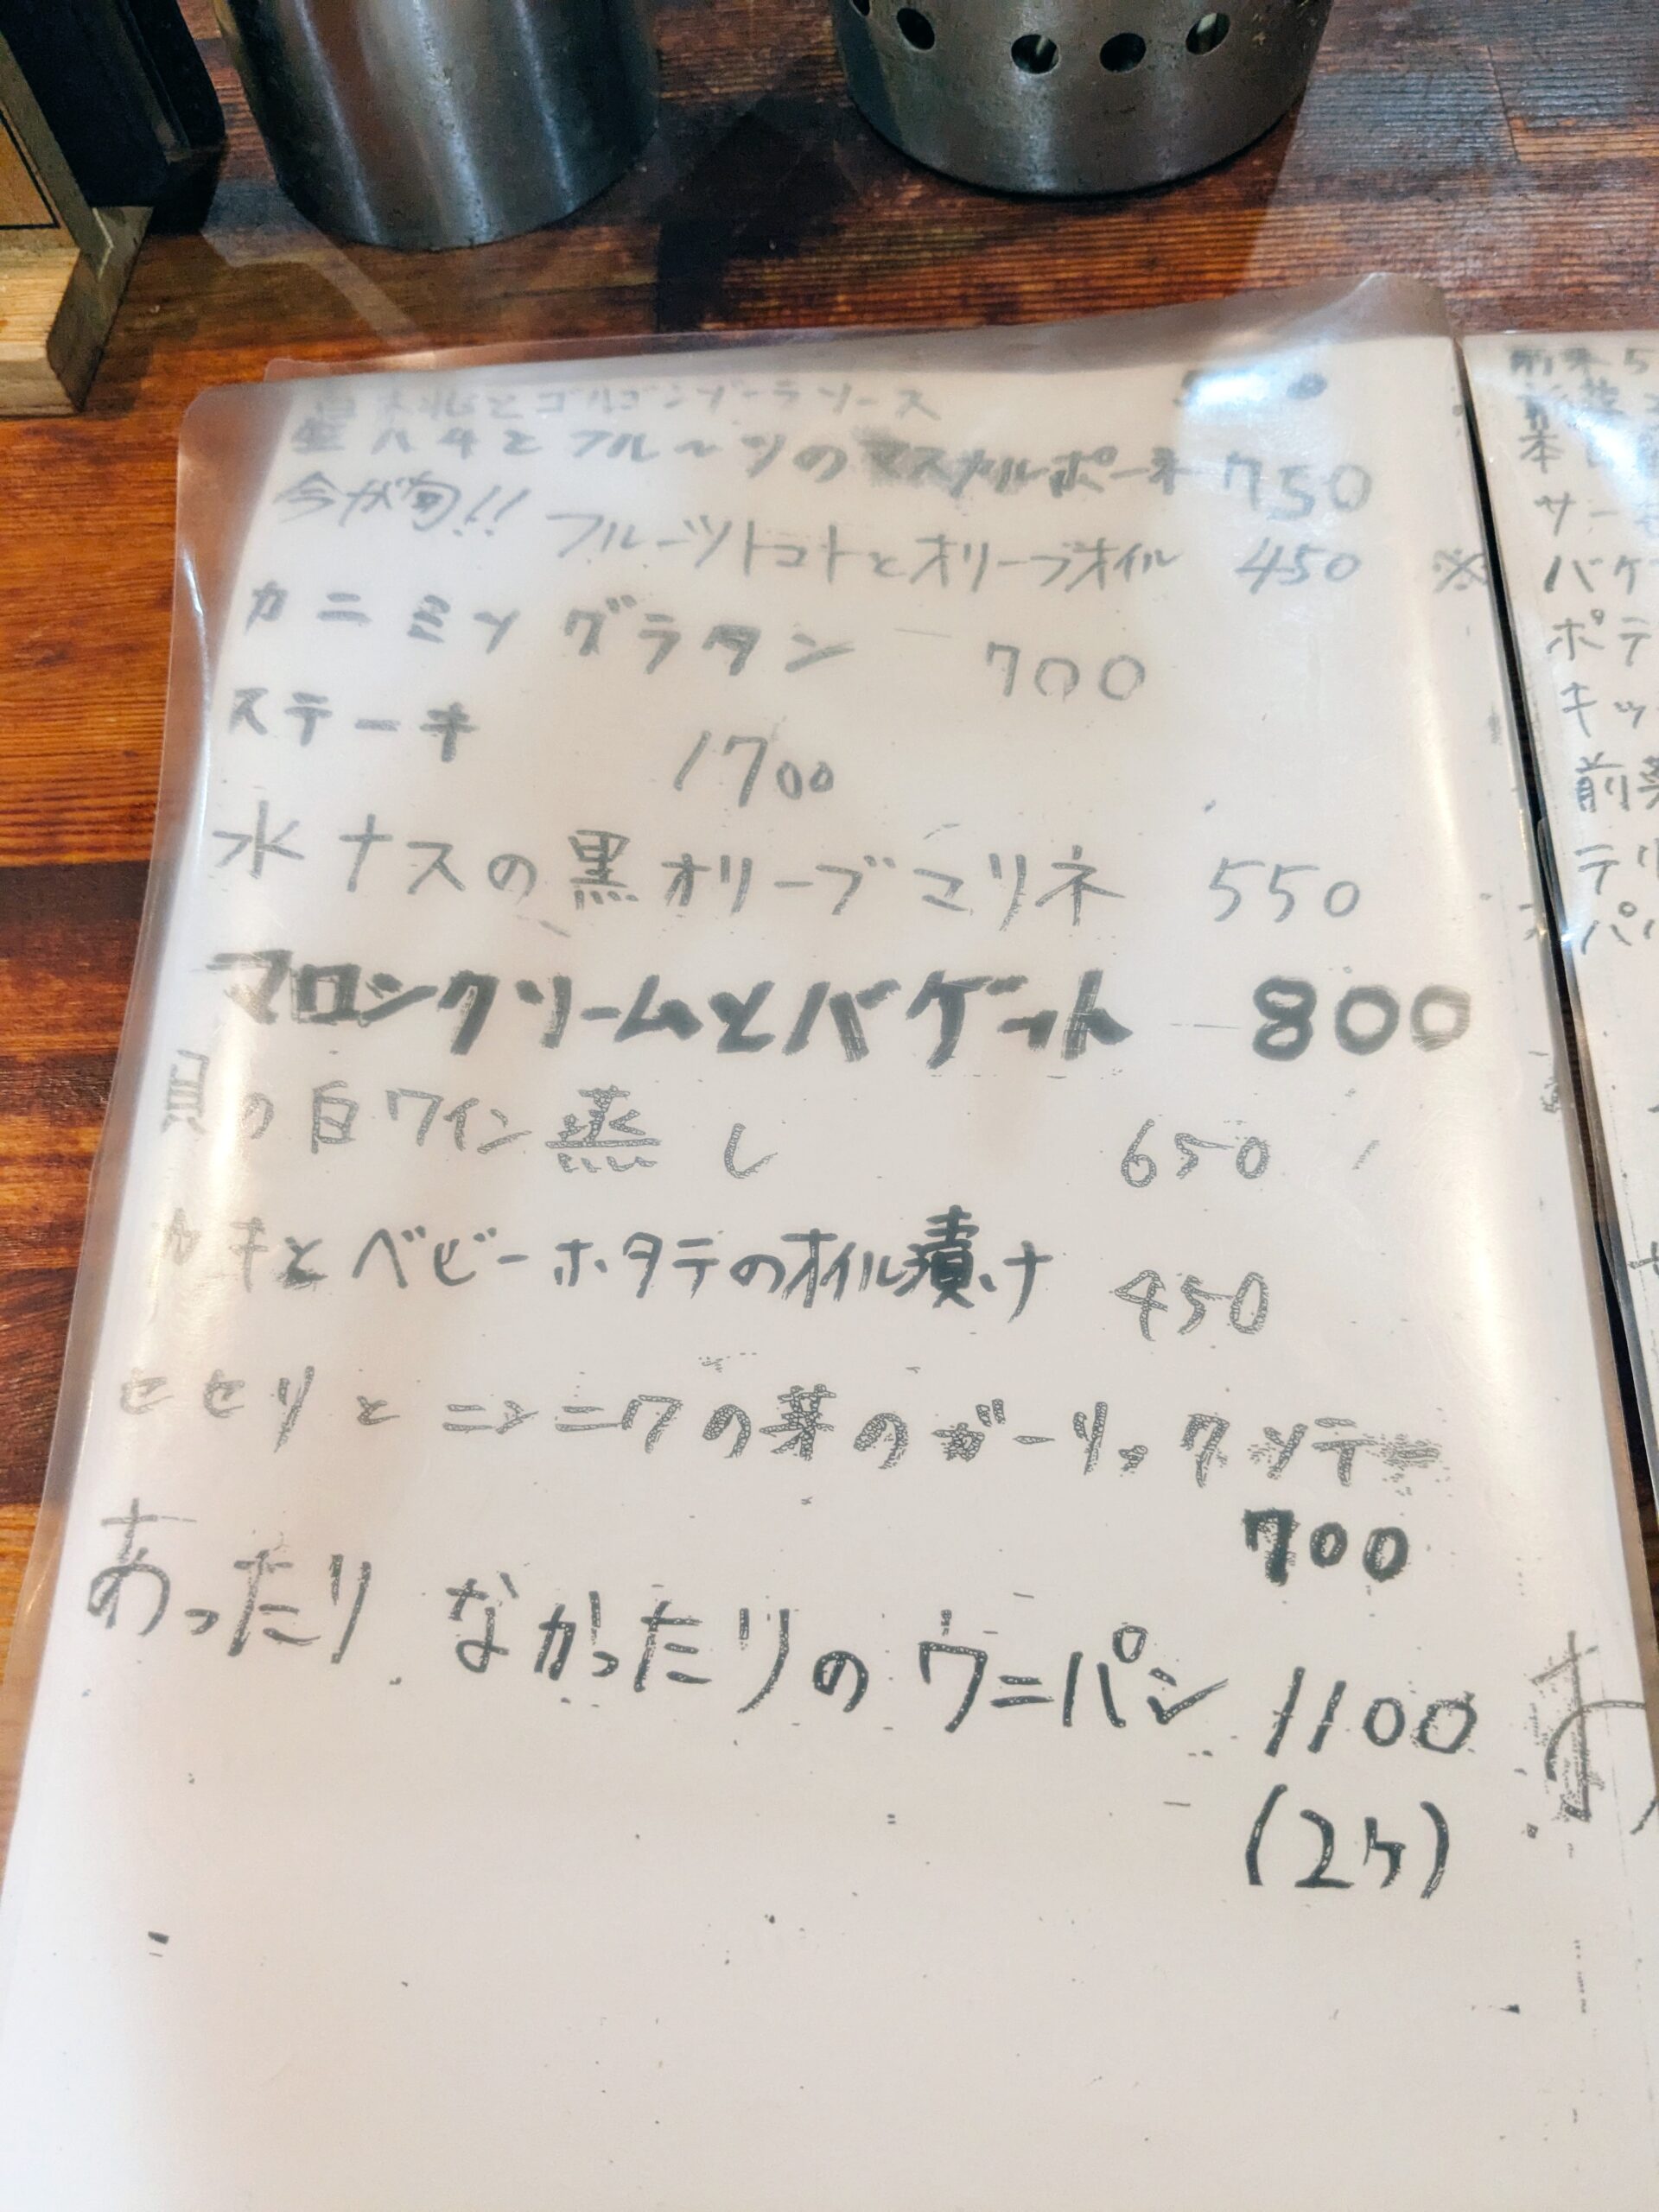 とゴルゴンゾーラソース
生ハムとフルーツのマスカルポーネ 750
今が旬!! フルーツトマトとオリーブオイル 450 ※
カニミソグラタン 700
ステーキ 1700
水ナスの黒オリーブマリネ 550
マロンクリームとバゲット 800
貝の白ワイン蒸し 650
カキとベビーホタテのオイル漬け 450
セセリとニンニクの芽のガーリックソテー
700
あったりなかったりのウニパン 1100
(2ケ)
本
サー
バケ
ポテ
キッ
前菜
テリ
パ